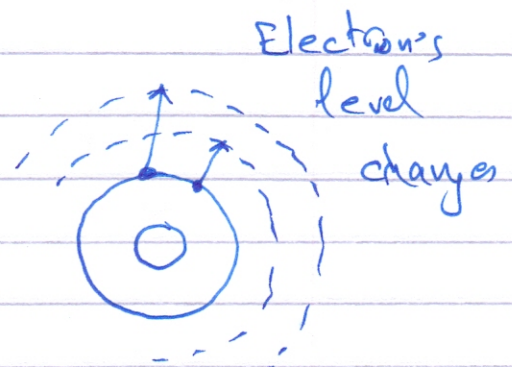 Electron's
level
changes